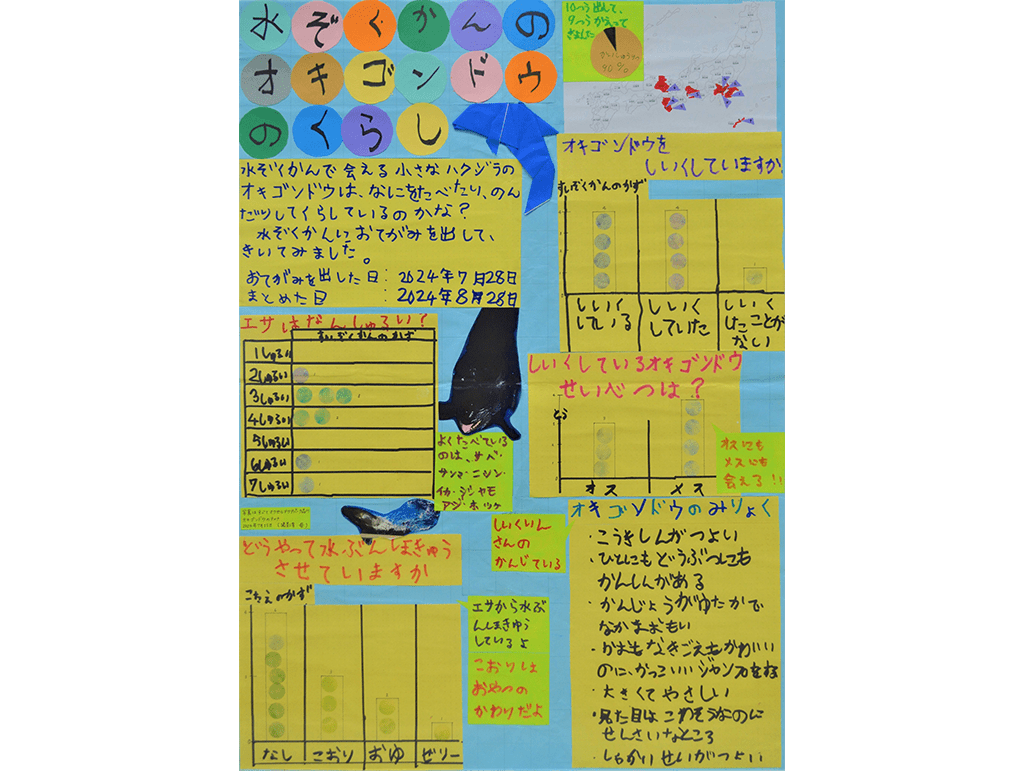 水ぞくかんの
オキゴンドウ
のくらし
10つう出して、
9つうかえって
きました
90%
水ぞくかんで会える小さなハクジラの
オキゴンドウは、なにをたべたり、のん
だりしてくらしているのかな?
水ぞくかんにおてがみを出して、
きいてみました。
おてがみを出した日:2024年7月28日
まとめた日:2024年8月28日
オキゴンドウを
しいくしていますか
すいぞくかんのかず
しいく
している
しいく
していた
しいく
したことが
ない
エサはなんしゅるい?
すいぞくかんのかず
1しゅるい
2しゅるい
3しゅるい
4しゅるい
5しゅるい
6しゅるい
7しゅるい
よくたべている
のは、サバ・
サンマ・ニシン・
イカ・シシャモ
アジ・ホッケ
しいくしているオキゴンドウ
せいべつは?
とう
オス
メス
オスにも
メスにも
会える!!
どうやって水ぶんほきゅう
させていますか
こたえのかず
なし
こおり
おゆ
ゼリー
エサから水ぶ
んほきゅう
しているよ
こおりは
おやつの
かわりだよ
しいくいん
さんの
かんじている
オキゴンドウのみりょく
・こうきしんがつよい
・ひとにもどうぶつにも
かんしんがある
・かんじょうがゆたかで
なかまおもい
・かおもなきごえもかわいい
のに、かっこいいジャンプをする
・大きくてやさしい
・見た目はこわそうなのに
せんさいなところ
・しゃかいせいがつよい